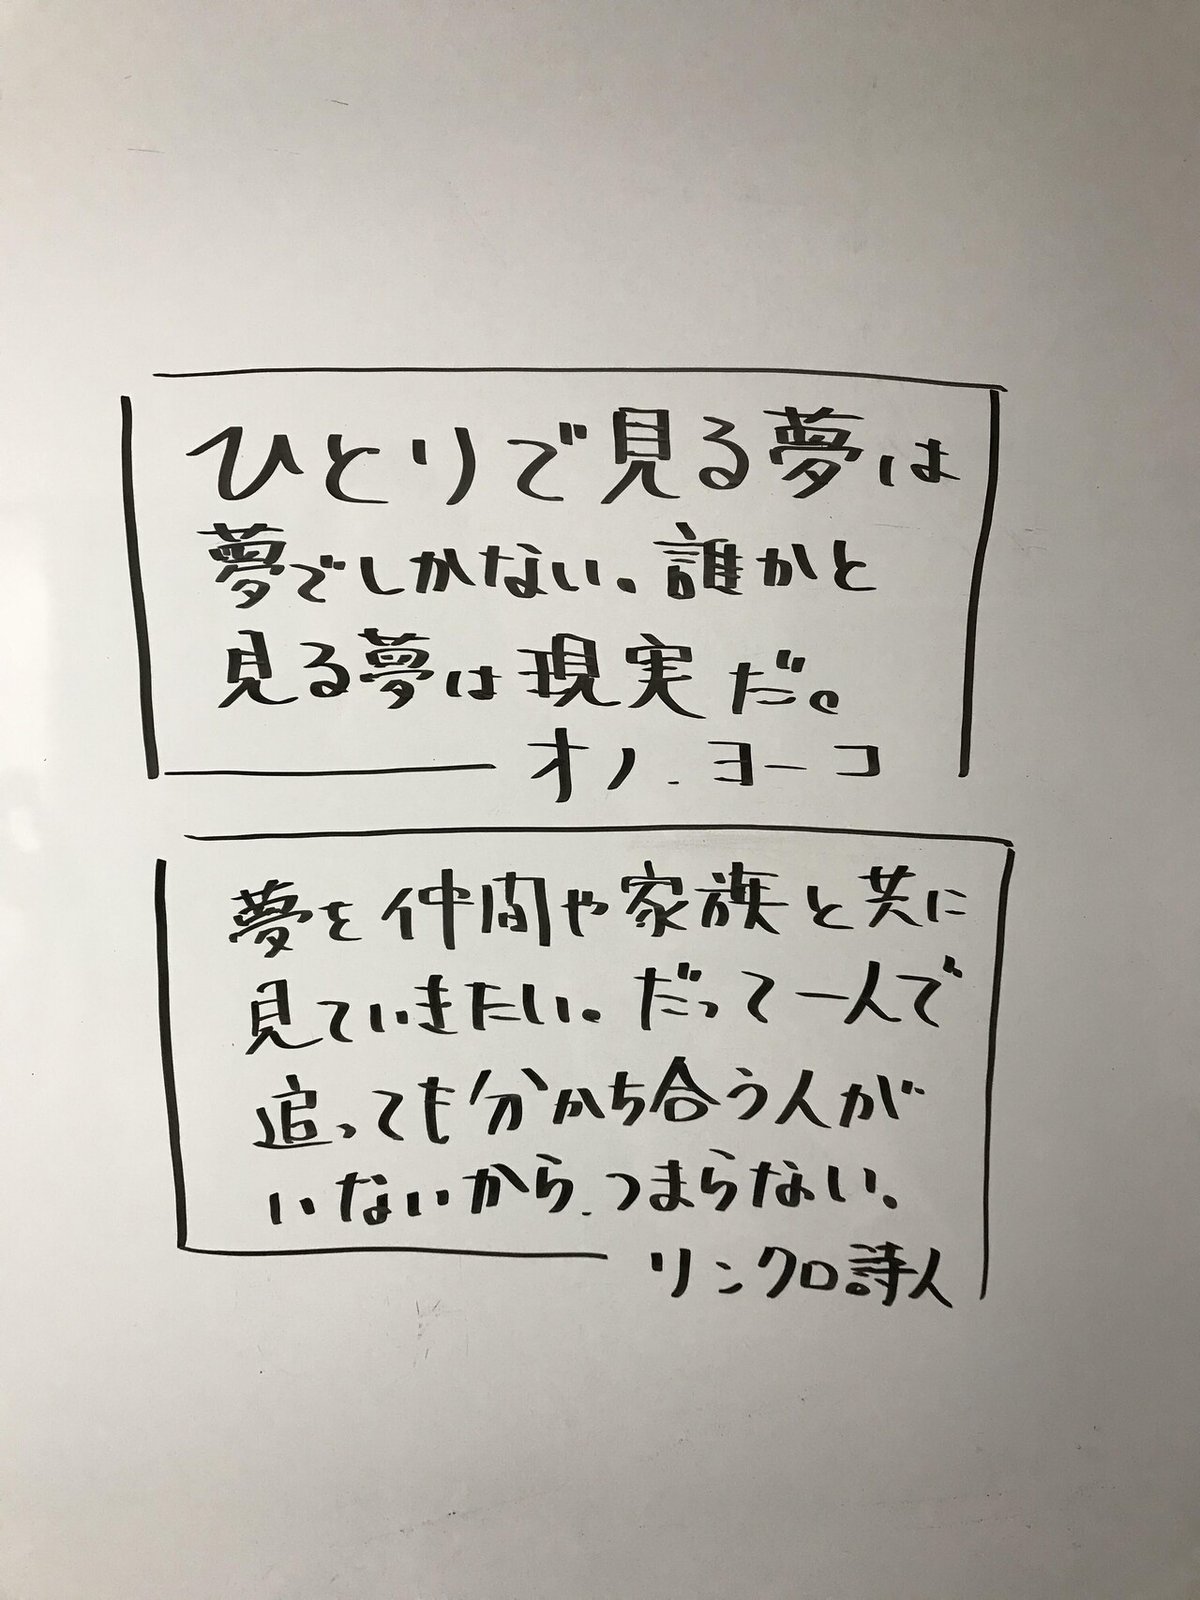 ひとりで見る夢は
夢でしかない。誰かと
見る夢は現実だ。
オノ.ヨーコ
夢を仲間や家族と共に
見ていきたい。だって一人で
追っても分かち合う人が
いないから.つまらない。
リンクロ詩人